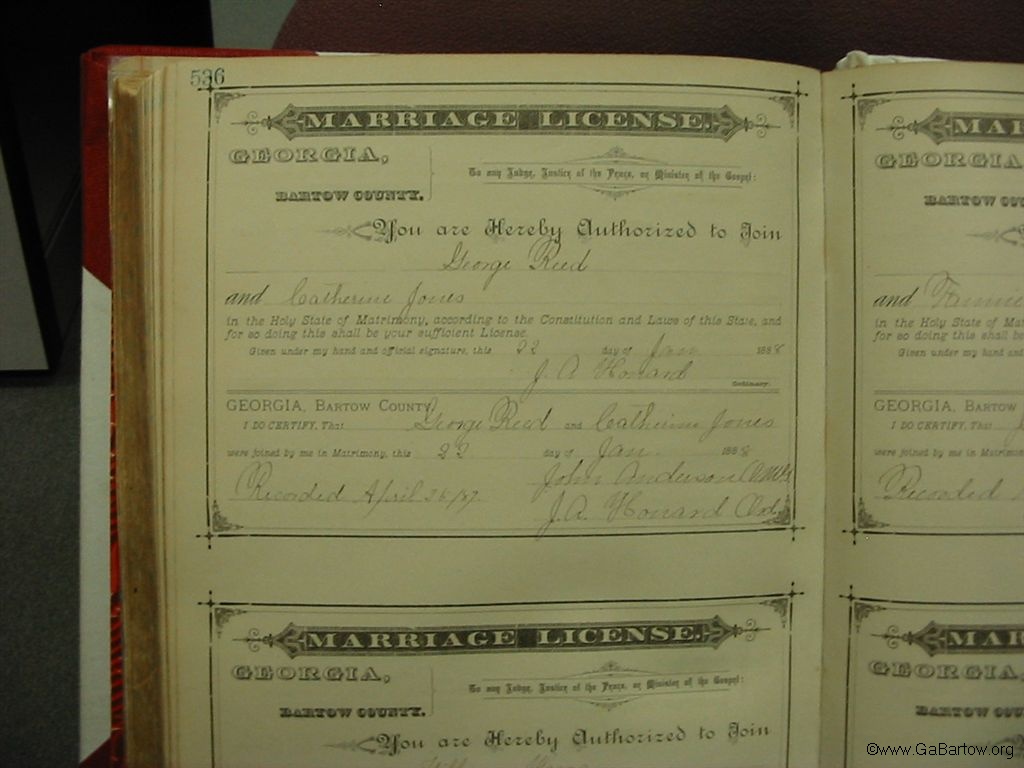 536
MARRIAGE LICENSE.
GEORGIA,
To any Judge, Justice of the Peace, or Minister of the Gospel:
BARTOW COUNTY.
You are Hereby Authorized to Join
George Reed
and Catherine Jones
in the Holy State of Matrimony, according to the Constitution and Laws of this State, and
for so doing this shall be your sufficient License.
Given under my hand and official signature, this 22 day of Jan 1888
J. A Howard
Ordinary.
GEORGIA, BARTOW COUNTY,
I DO CERTIFY, That George Reed and Catherine Jones
were joined by me in Matrimony, this 22 day of Jan. 1888
John Anderson
Recorded April 26/87
J. A. Howard Ord.
MARRIAGE LICENSE.
GEORGIA,
To any Judge, Justice of the Peace, or Minister of the Gospel:
BARTOW COUNTY.
You are Hereby Authorized to Join
MAR
GEORGIA
BARTOW COU
and Fannie
in the Holy State of Mat
for so doing this shall be
Given under my hand and
GEORGIA, BARTOW
I DO CERTIFY, That
were joined by me in Matrimon
Recorded
MAR
GEORGIA,
BARTOW COU
©www.GaBartow.org